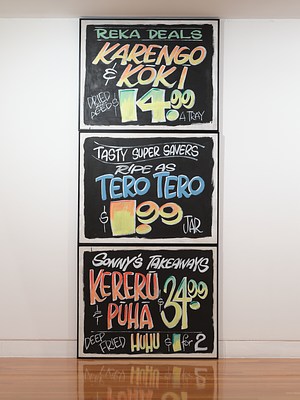 REKA DEALS
KARENGO
& KŌKI
$14.99
A TRAY
TASTY SUPER SAVERS
RIPE AS
TERO TERO
$1.99
JAR
SONNY'S TAKEAWAYS
KERERŪ
& PŪHĀ $34.99
DEEP FRIED HUHU $1 for 2